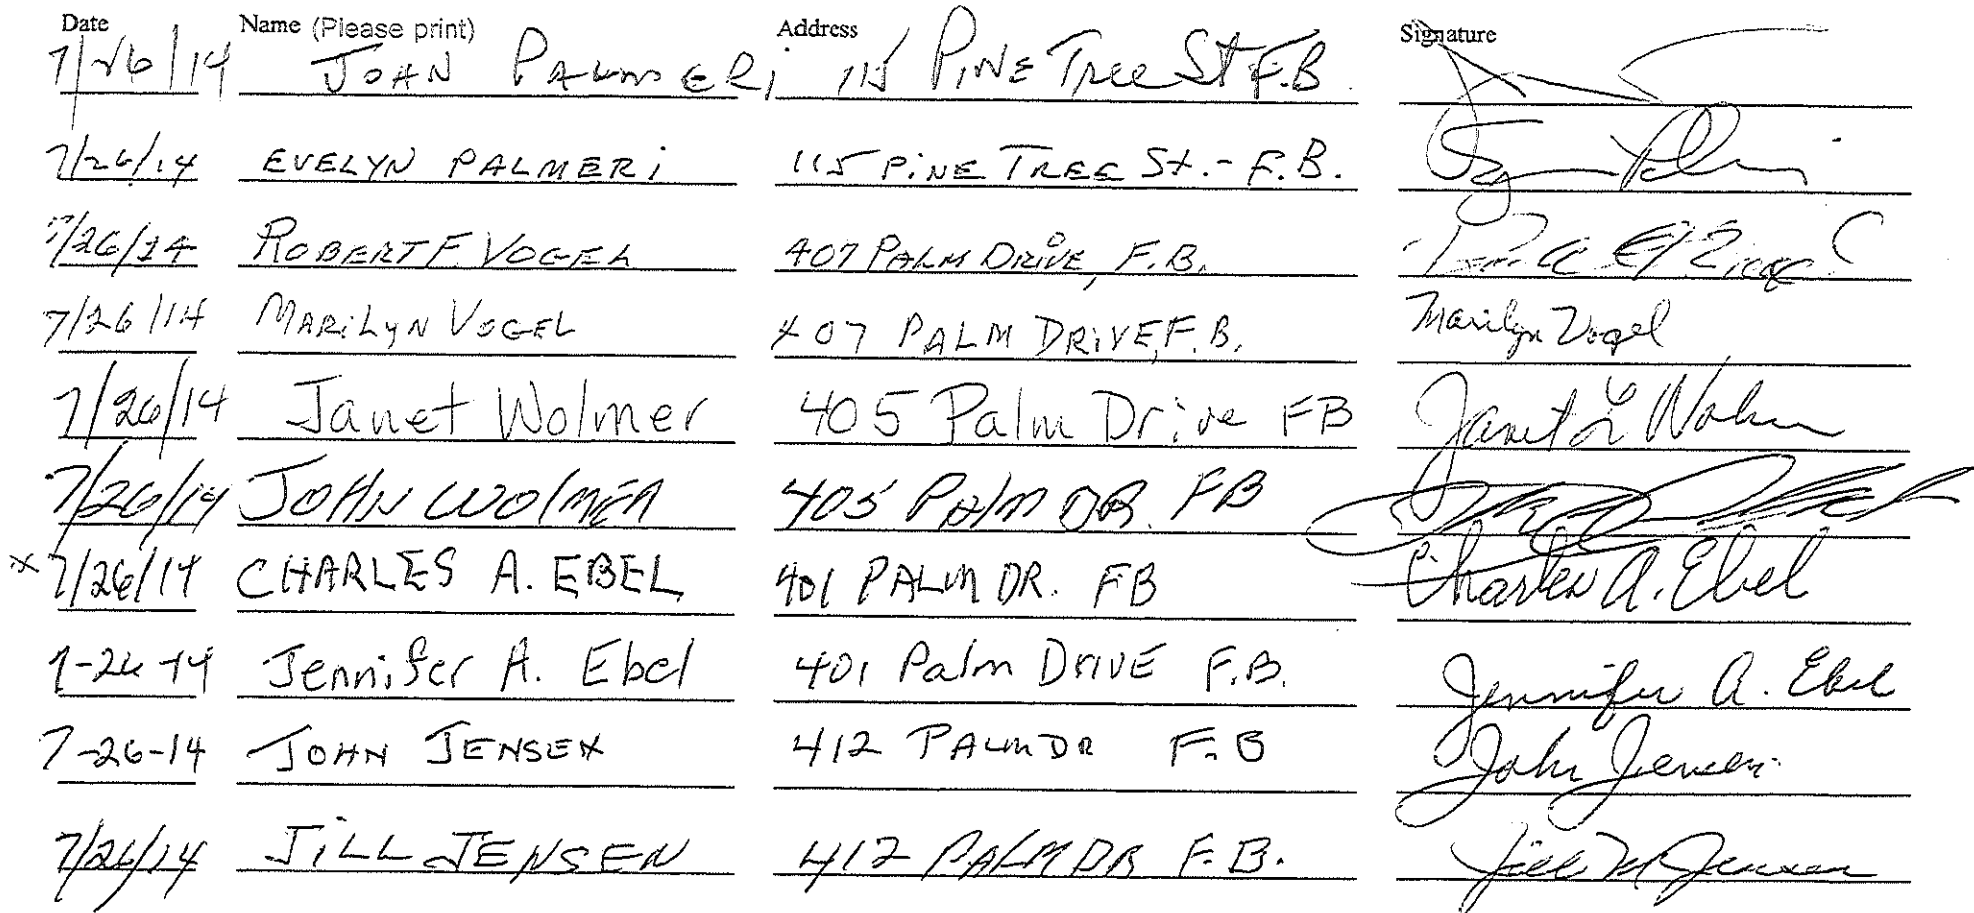 Date Name (Please print) Address Signature
7/26/14 JOHN PALMERi 115 PINE Tree St F.B.
7/26/14 EVELYN PALMERi 115 PiNE TREE St. - F.B.
7/26/14 ROBERT F. VOGEL 407 PALM DRiVE, F.B.
7/26/14 MARiLyN VOGEL 407 PALM DRiVE, F.B. Marilyn Vogel
7/26/14 Janet Wolmer 405 Palm Drive FB Janet L Wolmer
7/26/14 JOHN WOlMER 405 PAlM DR. FB
x 7/26/14 CHARLES A. EBEL 401 PALM DR. FB Charles A. Ebel
7-26-14 Jennifer A. Ebel 401 Palm DRIVE F.B. Jennifer A. Ebel
7-26-14 JOHN JENSEN 412 PALM DR F.B John Jensen
7/26/14 JiLL JENSEN 412 PALM DR F.B. Jill M Jensen